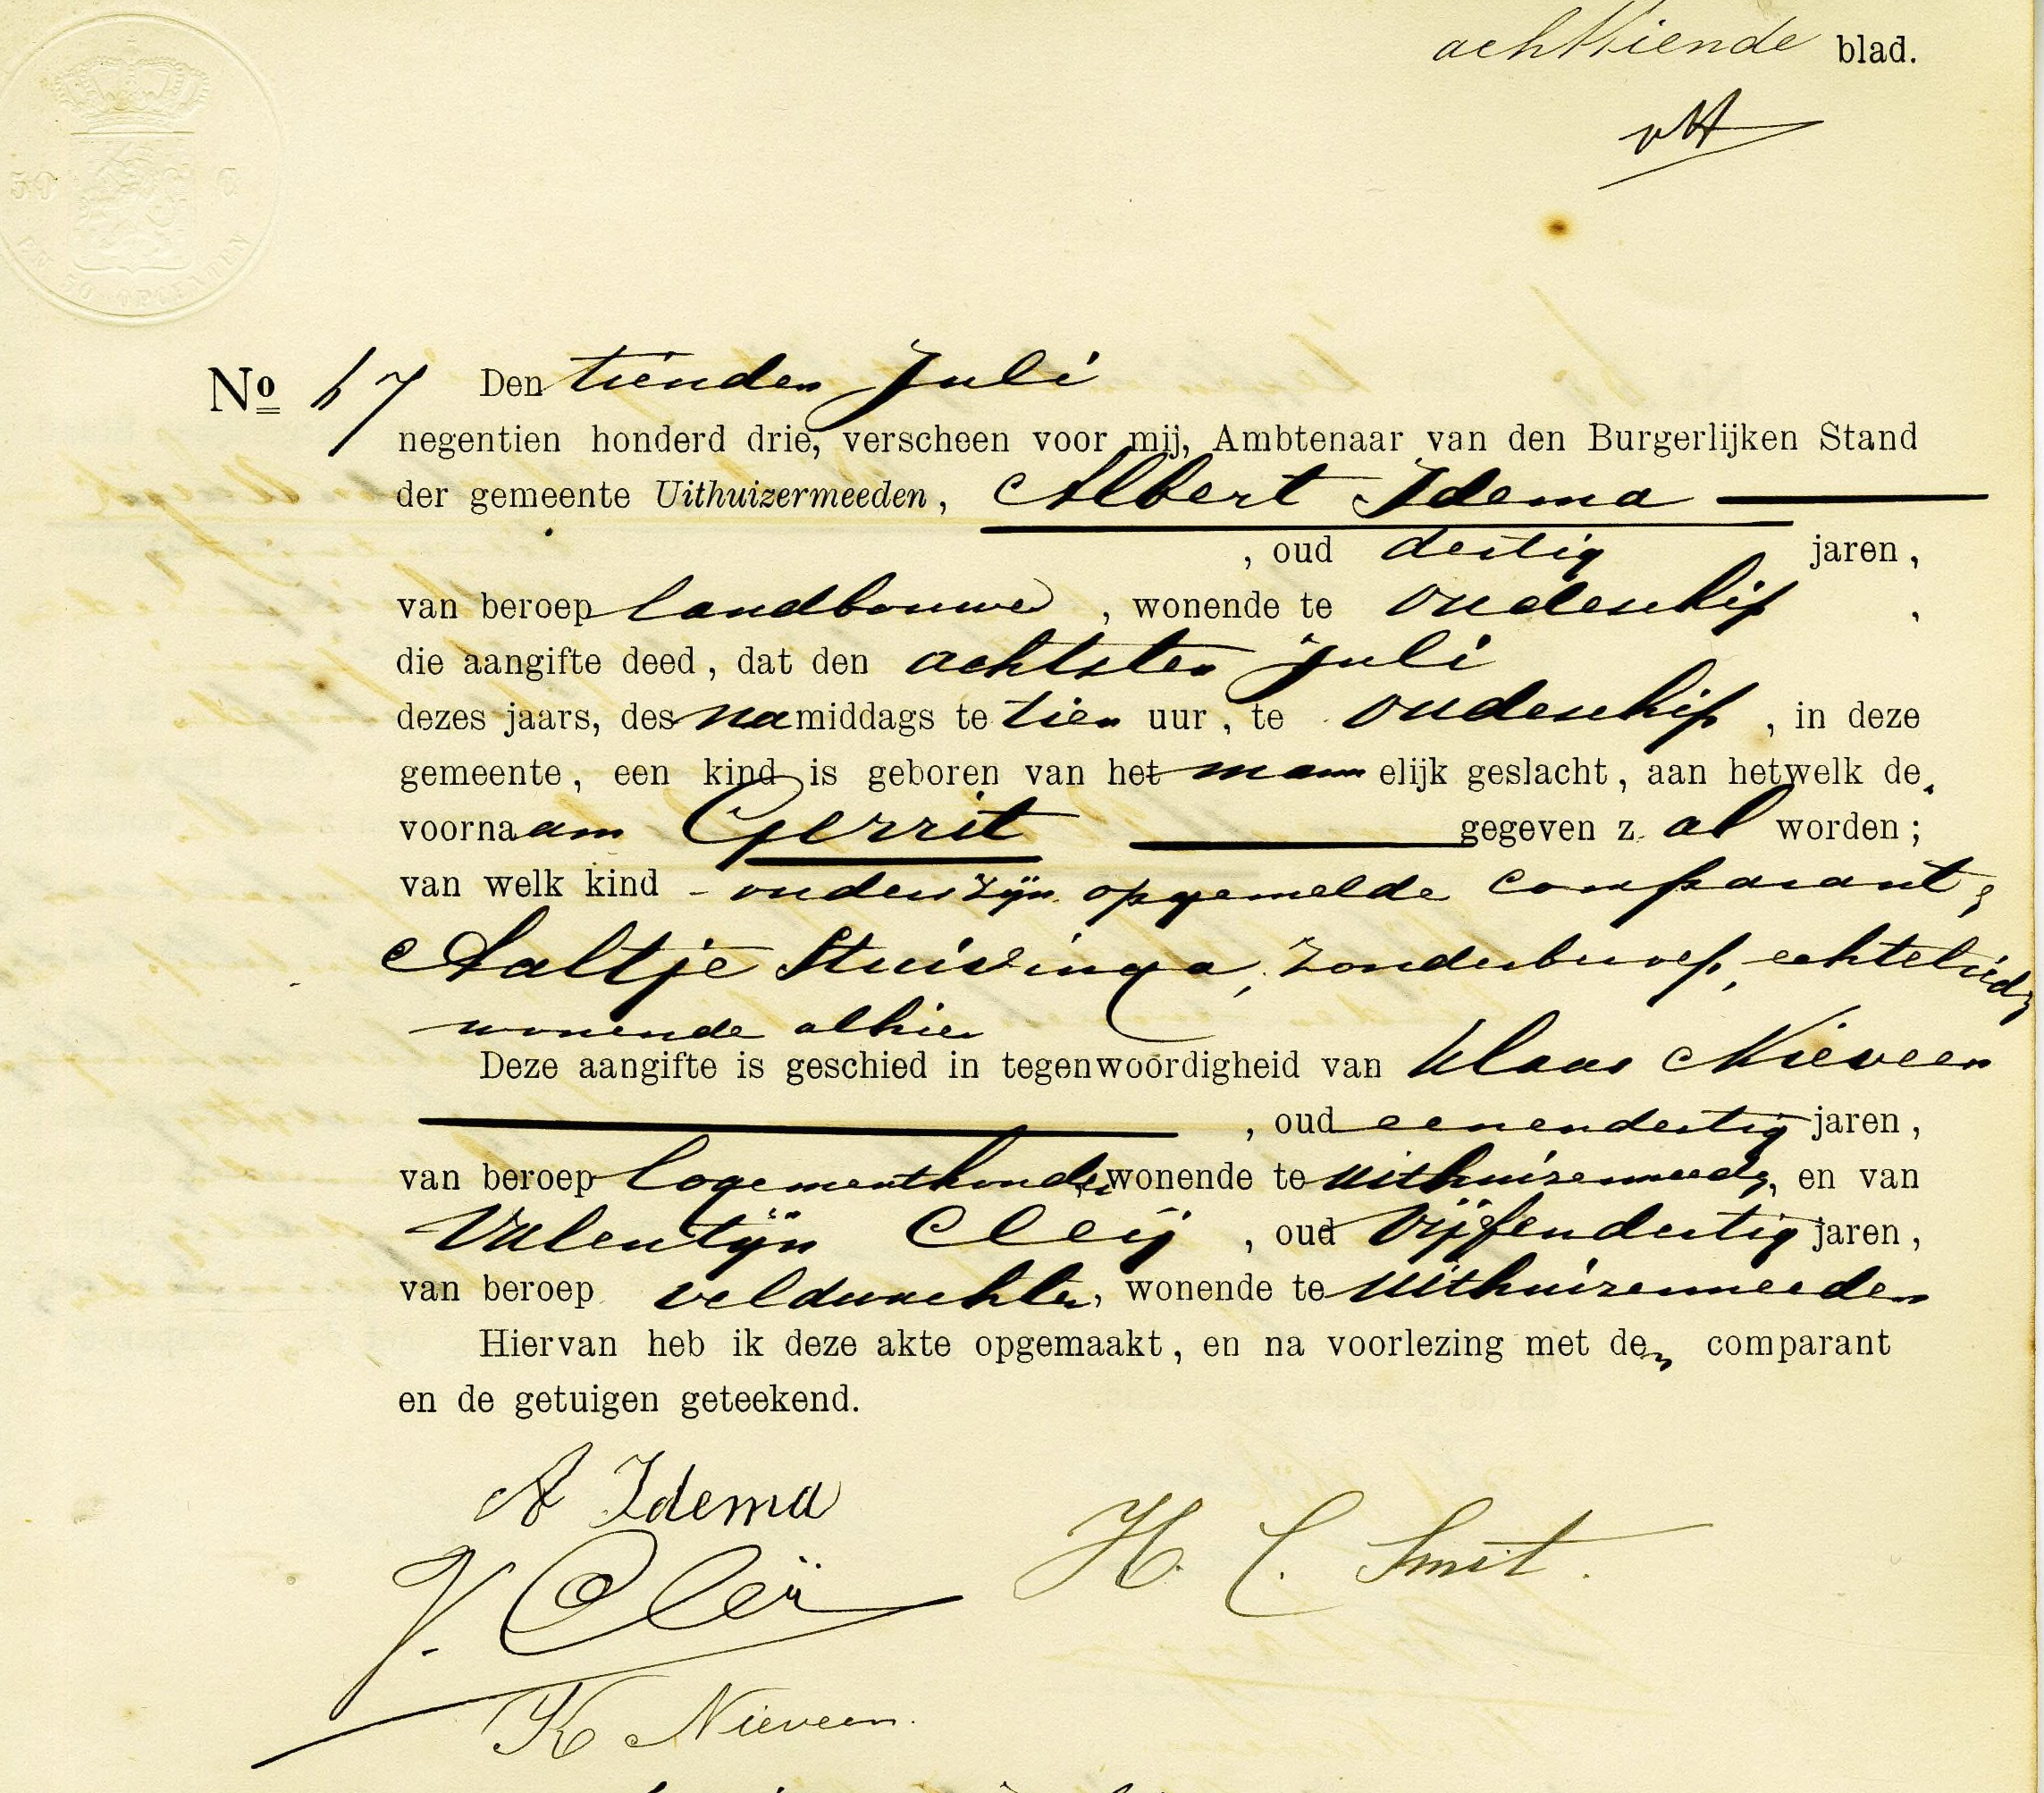 achttiende blad.
vH
50 C
50 OPCENTEN
No 67 Den tienden Juli
negentien honderd drie, verscheen voor mij, Ambtenaar van den Burgerlijken Stand
der gemeente Uithuizermeeden, Albert Idema
, oud dertig jaren,
van beroep landbouwer, wonende te Oudeschip,
die aangifte deed, dat den achtsten Juli
dezes jaars, des namiddags te tien uur, te Oudeschip, in deze
gemeente, een kind is geboren van het mannelijk geslacht, aan hetwelk de
voornaam Gerrit gegeven zal worden;
van welk kind ouders zijn opgemelde comparant,
Aaltje Stuivinga, zonder beroep, echtelieden,
wonende alhier
Deze aangifte is geschied in tegenwoordigheid van Klaas Nieveen
, oud eenendertig jaren,
van beroep logementhouder, wonende te Uithuizermeeden, en van
Valentijn Cleij, oud vijfendertig jaren,
van beroep veldwachter, wonende te Uithuizermeeden
Hiervan heb ik deze akte opgemaakt, en na voorlezing met den comparant
en de getuigen geteekend.
A Idema
H. C. Smit.
V. Cleij
K Nieveen.